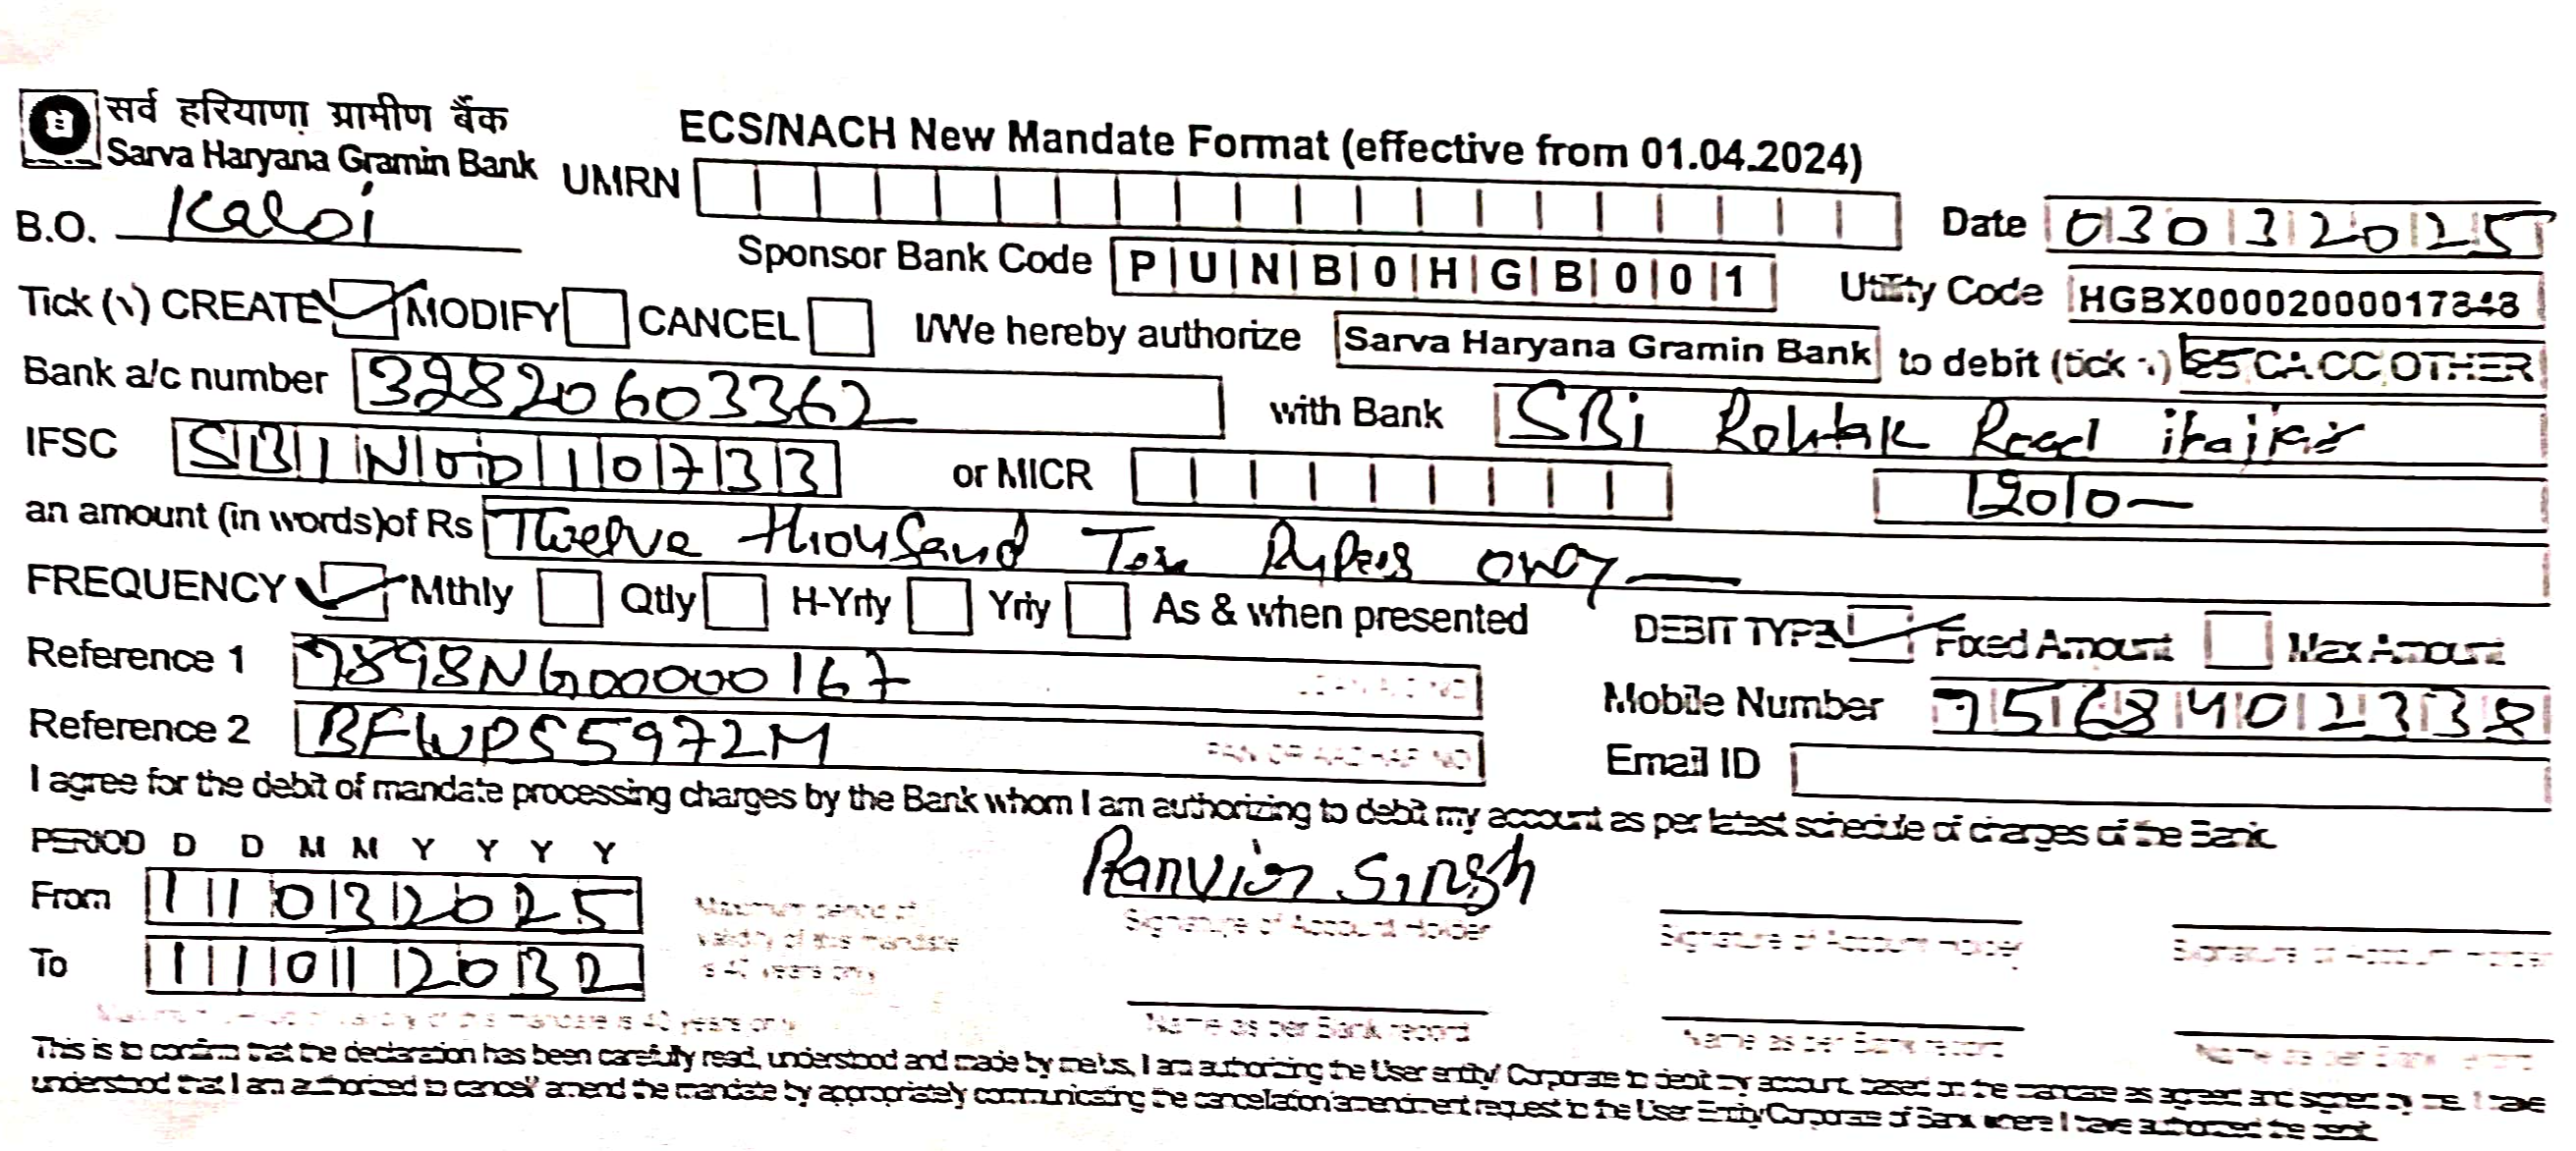 सर्व हरियाणा ग्रामीण बैंक
Sarva Haryana Gramin Bank
ECS/NACH New Mandate Format (effective from 01.04.2024)
UMRN
B.O. Kaloi
Date 03032025
Sponsor Bank Code PUNB0HGB001
Utility Code HGBX00002000017848
Tick (√) CREATE MODIFY CANCEL I/We hereby authorize Sarva Haryana Gramin Bank to debit (tick √) CA CC OTHER
Bank a/c number 32820603362 with Bank SBi Rohtak Road
IFSC SBIN0010733 or MICR 12010—
an amount (in words)of Rs Twelve thousand Ten Rupees only—
FREQUENCY Mthly Qtly H-Yrly Yrly As & when presented
DEBIT TYPE Fixed Amount Max Amount
Reference 1 7898NG00000167
Mobile Number 7568402338
Reference 2 BFWPS5972M PAN OR AADHAR NO
Email ID
I agree for the debit of mandate processing charges by the Bank whom I am authorizing to debit my account as per latest schedule of charges of the Bank.
PERIOD D D M M Y Y Y Y
From 11032025
To 11012032
Maximum period of
validity of this mandate
is 40 years only
Ranvir Singh
Signature of Account Holder Signature of Account Holder Signature of Account Holder
Name as per Bank record Name as per Bank record Name as per Bank record
This is to confirm that the declaration has been carefully read, understood and made by me/us, I am authorizing the User entity/ Corporate to debit my account based on the mandate as agreed and signed by me. I have
understood that I am authorised to cancel/ amend the mandate by appropriately communicating the cancellation/amendment request to the User Entity/Corporate of Bank where I have authorised the debit.